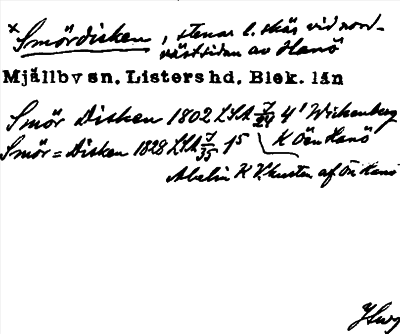 * Smördisken, stenar l. skär vid nord-
västsidan av Hanö
Mjällby sn. Listers hd. Blek. län
Smör Disken 1802 LSA 7/24 4' Wickenberg
K Öen Hanö
Smör=Disken 1828 LSA 7/35 f5
Abelin K V.kusten af Ön Hanö